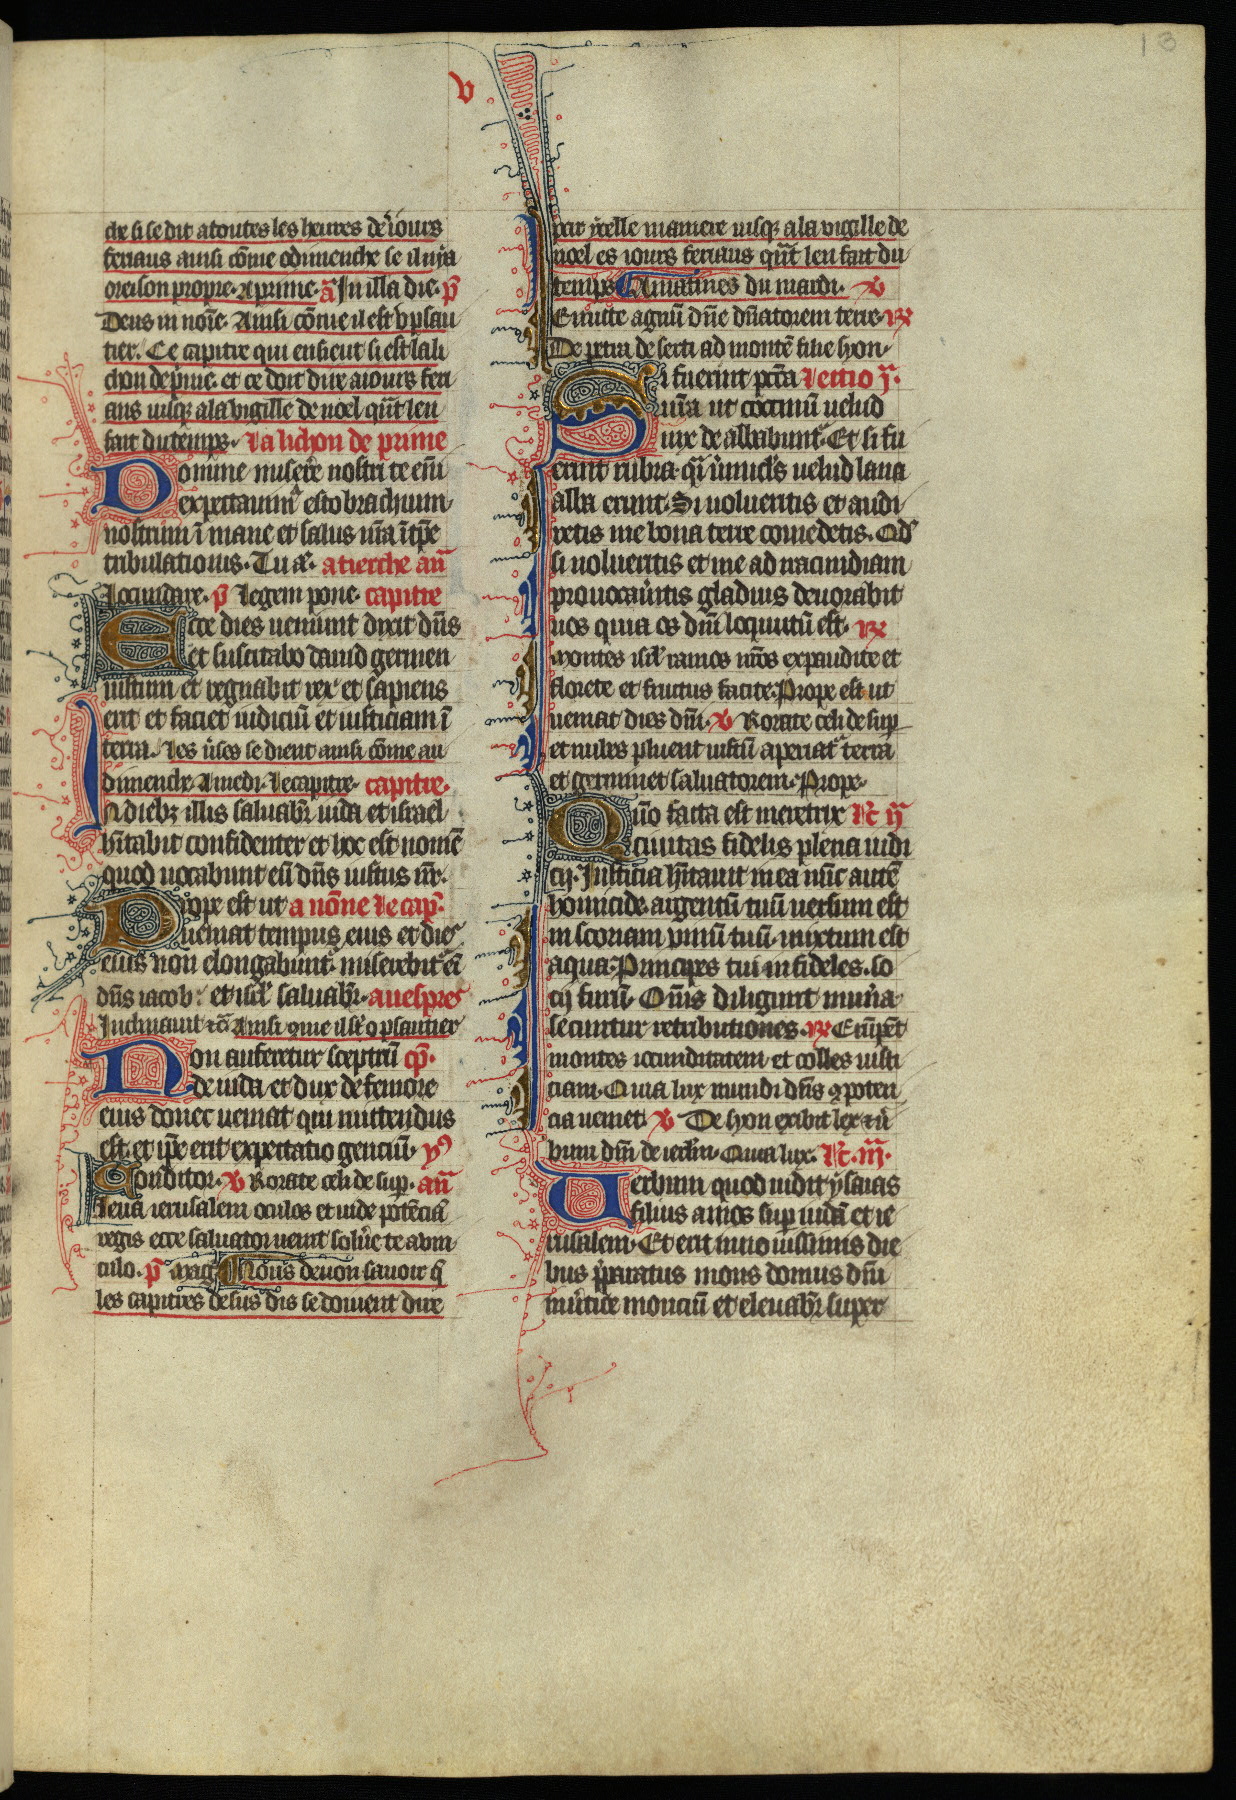 13
v
che si se dit atoutes les heures de ̾ iours
feriaus ainsi cōme odimenche se il niȷa
oreison propre. A prime. ā In illa die. p̄
Deus in noīe. Ainsi cōme il est v psau
tier. Ce capitre qui ensieut si est lali
chon de prime. et ce doit dire aiours feri
aus iusqȝ ala vigille de noel qn̄t len
fait du temps. La lichon de prime
Domine misere̾ nostri te em̄
expectauim̾ esto brachium
nostrum ī mane et salus nr̄a ī tp̄e
tribulationis. Tu aū. atierche an̄
Iocundare. p̄ Legem pone. capitre
Ecce dies ueniunt dixit dn̄s
et suscitabo dauid germen
iustum et regnabit rex et sapiens
erit et faciet iudiciū et iusticiam ī
terra. Les u̾ses se dient ainsi cōme au
dimenche. A miedi. Le capitre. capitre.
In diebȝ illis saluabr̄ iuda et israel
hītabit confidenter et hoc est nomē
quod uocabunt eū dn̄s iustus nr̄.
Prope est ut a nōne le cap̄.
ueniat tempus eius et dies
eius non elongabunt̾ miserebit̾ eī
dn̄s iacob: et isrl̄ saluabr̄. a vespres
Inclinauit ⁊c̄ Ainsi que il sē o psautier
Non auferetur sceptrū cp̄.
de iuda et dux de femore
eius donec ueniat qui mittendus
est. et ip̄e erit expectatio genciū. yꝰ
Conditor. v Rorate celi de sup̄. an̄
Leua ierusalem oculos et uide potēciā
regis ecce saluator uenit solu̾e te a vin
culo. p̄ mag̾ Nous deuon sauoir q̄
les capitres desus dis se doiuent dire
par ycelle maniere iusqȝ ala vigille de
noel es iours feriaus qn̄t len fait du
temps A matines du mardi. v
Emitte agnū dn̄e dn̄atorem terre. ℞
De petra deserti ad montē filie syon.
Si fuerint pcc̄a lectio j̄.
ur̄a ut coccinū uelud
nix dealbabunt̾. Et si fu
erint rubra. qīi u̾micl̾s uelud lana
alba erunt. Si uolueritis et audi
retis me bona terre comedetis. Qd̾
si nolueritis et me ad iracundiam
prouocau̾itis gladius deuorabit
uos quia os dn̄i loquutū est. ℞
Montes isrl̄ ramos nr̄os expandite et
florete et fructus facite. Prope est ut
ueniat dies dn̄i. v Rorate celi de sup̄
et nubes pluent iustū aperiat̾ terra
et germinet saluatorem. Prope.
Quō facta est meretrix lc̄ ij̄
ciuitas fidelis plena iudi
cij. Iusticia hītauit in ea nūc autē
homicide. argentū tuū uersum est
in scoriam vinū tuū mixtum est
aqua. Principes tui infideles. so
cij furū. Om̄s diligunt mun̾a
secuntur retributiones. ℞ Erūpēt
montes iocunditatem et colles iusti
ciam. Quia lux mundi dn̄s ꝯ poten
cia uenet. v De syon exibit lex ⁊ u̾
bum dn̄i de ierl̄m. Quia lux. lc̄. iij̄.
Uerbum quod uidit ysaias
filius amos sup̄ iudā et ie
rusalem. Et erit in nouissimis die
bus p̄paratus mons domus dn̄i
in u̾tice monciū et eleuabr̄ super